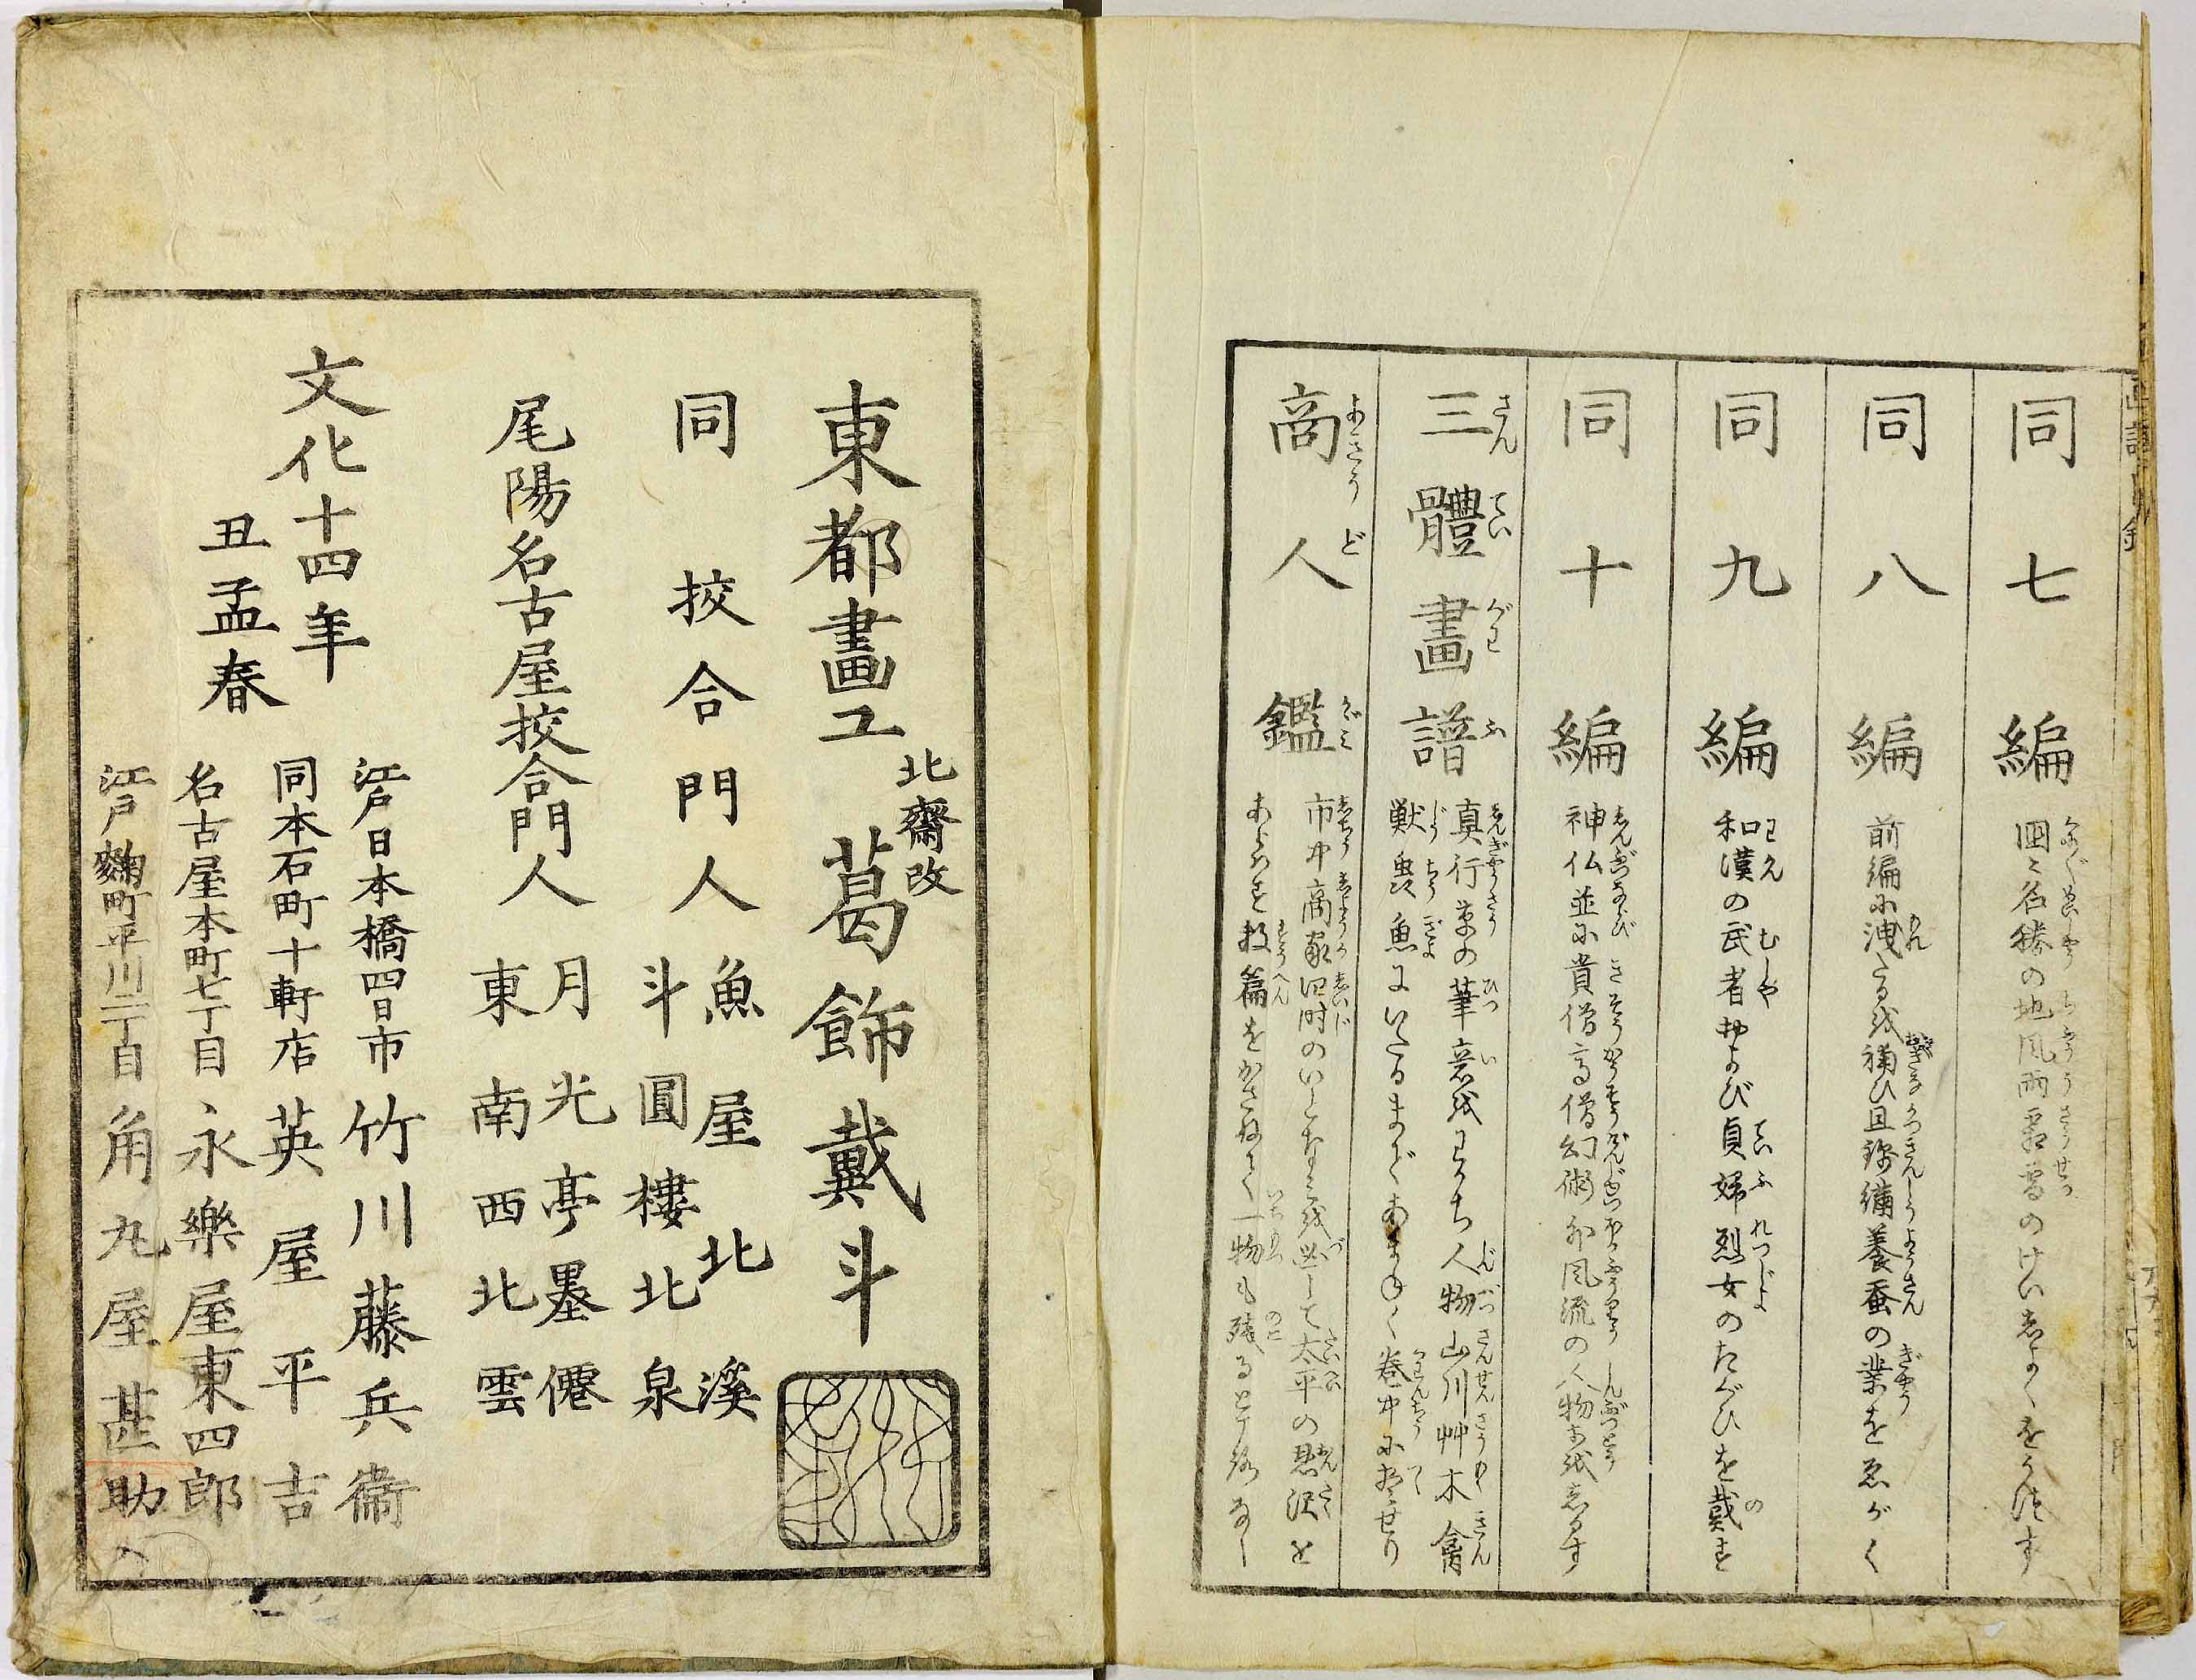 同七編
國〻名勝の地風雨霜雪のけいしよくをうつす
同八編
前編に洩たるを補ひ且珎禽養蚕の業をゑがく
同九編
和漢の武者および貞婦烈女のたぐひを戴す
同十編
神仏並に貴僧高僧幻術即風流の人物等をしるす
三體畫譜
真行草の筆意をわかち人物山川艸木禽
獣虫魚にいたるまであまねく巻中に摸せり
商人鑑
市中商家四時のいとなみを図して太平の恩沢を
あらはす数篇をかさねて一物も残ることなし
東都畫工 北齋改 葛飾戴斗
同 挍合門人 魚屋北溪
斗圓樓北泉
尾陽名古屋挍合門人 月光亭墨僊
東南西北雲
文化十四年
丑孟春
江戸日本橋四日市 竹川藤兵衞
同本石町十軒店 英屋平吉
名古屋本町七丁目 永樂屋東四郎
江戸麹町平川二丁目 角丸屋甚助